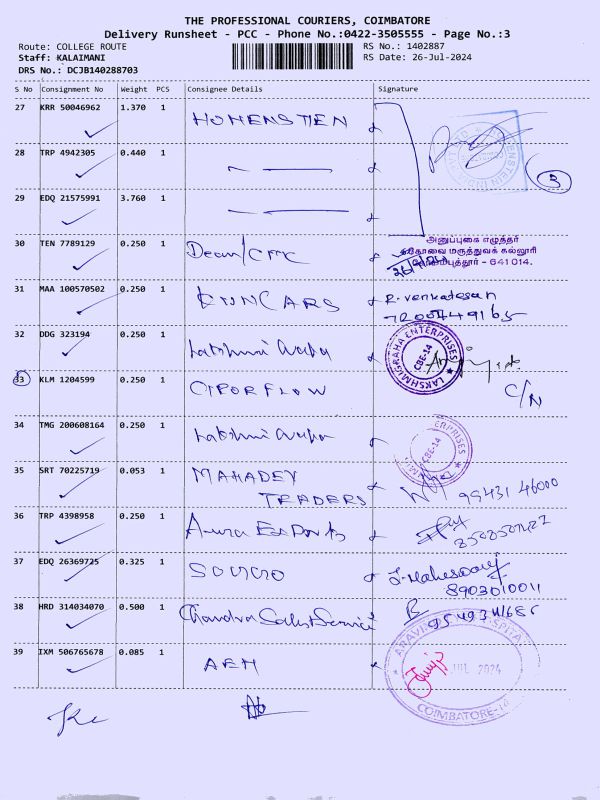 THE PROFESSIONAL COURIERS, COIMBATORE
Delivery Runsheet - PCC - Phone No.:0422-3505555 - Page No.:3
Route: COLLEGE ROUTE RS No.: 1402887
Staff: KALAIMANI RS Date: 26-Jul-2024
DRS No.: DCJB140288703
S No Consignment No Weight PCS Consignee Details Signature
27 KRR 50046962 1.370 1 HOHENSTIEN
28 TRP 4942305 0.440 1
3
29 EDQ 21575991 3.760 1
30 TEN 7789129 0.250 1 Dean/CMC
அனுப்புகை எழுத்தர்
கோவை மருத்துவக் கல்லூரி
- 641014.
31 MAA 100570502 0.250 1 R. Venkatesan
7200449165
32 DDG 323194 0.250 1 Lakshmi
LAKSHMIGRAHA ENTERPRISES
CBE-14
33 KLM 1204599 0.250 1 CIPORFLOW C/N
34 TMG 200608164 0.250 1 Lakshmi
CBE-14
35 SRT 70225719 0.053 1 MAHADEV
TRADERS 99431 46000
36 TRP 4398958 0.250 1 Aura Exports
37 EDQ 26369725 0.325 1
8903010011
38 HRD 314034070 0.500 1 Chandra Sales Service
39 IXM 506765678 0.085 1 AEH
JUL 2024
COIMBATORE-14